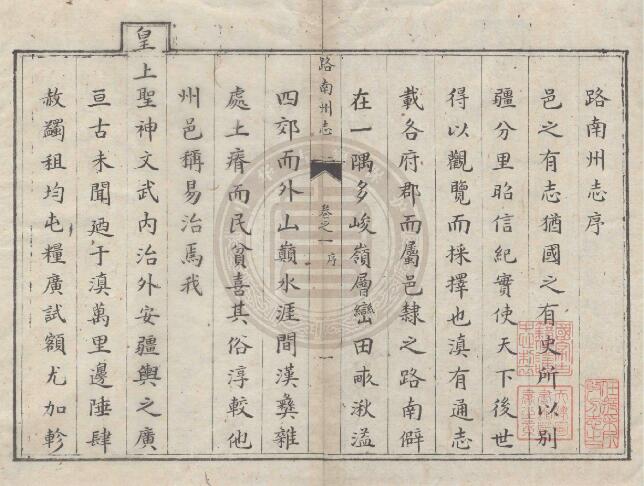 路南州志序
邑之有志猶國之有史所以別
疆分里昭信紀實使天下後世
得以觀覽而採擇也滇有通志
載各府郡而屬邑隸之路南僻
在一隅多峻嶺層巒田畞湫溢
路南州志
卷之一 序
一
四郊而外山巔水涯間漢彝雜
處土瘠而民貧喜其俗淳較他
州邑稱易治焉我
皇上聖神文武內治外安疆輿之廣
亘古未聞廼于滇萬里邊陲肆
赦蠲租均屯糧廣試額尤加軫